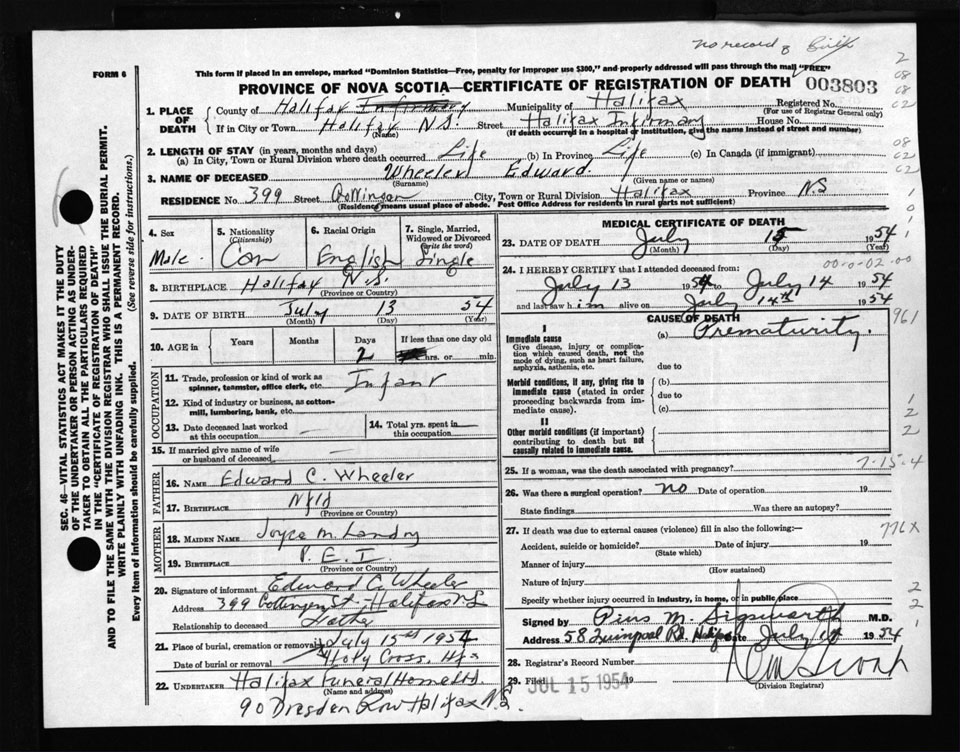 no record of Birth
FORM 6
This form if placed in an envelope, marked "Dominion Statistics—Free, penalty for improper use $300," and properly addressed will pass through the mail "FREE"
PROVINCE OF NOVA SCOTIA—CERTIFICATE OF REGISTRATION OF DEATH 003803
1. PLACE OF DEATH
County of Halifax Infirmary Municipality of Halifax Registered No.
(For use of Registrar General only)
If in City or Town Halifax N.S. Street Halifax Infirmary House No.
(Name) (If death occurred in a hospital or institution, give the name instead of street and number)
2. LENGTH OF STAY (in years, months and days)
(a) In City, Town or Rural Division where death occurred Life (b) In Province Life (c) In Canada (if immigrant)
3. NAME OF DECEASED Wheeler Edward.
(Surname) (Given name or names)
RESIDENCE No. 399 Street City, Town or Rural Division Halifax Province N.S
(Residence means usual place of abode. Post Office Address for residents in rural parts not sufficient)
4. Sex
Male.
5. Nationality (Citizenship)
Can
6. Racial Origin
English
7. Single, Married, Widowed or Divorced (write the word)
Single
8. BIRTHPLACE Halifax N.S.
(Province or Country)
9. DATE OF BIRTH July 13 54
(Month) (Day) (Year)
10. AGE in
Years Months Days If less than one day old
2 hrs. or min.
OCCUPATION
11. Trade, profession or kind of work as spinner, teamster, office clerk, etc. Infant
12. Kind of industry or business, as cotton-mill, lumbering, bank, etc.
13. Date deceased last worked at this occupation
14. Total yrs. spent in this occupation
15. If married give name of wife or husband of deceased
FATHER
16. NAME Edward C. Wheeler
17. BIRTHPLACE Nfld
MOTHER
18. MAIDEN NAME Joyce M. Landry
19. BIRTHPLACE P.E.I.
(Province or Country)
20. Signature of informant Edward C. Wheeler
Address 399 Gottingen St. Halifax N.S.
Relationship to deceased Father
21. Place of burial, cremation or removal July 15th 1954
Date of burial or removal Holy Cross. Hfx
22. UNDERTAKER Halifax Funeral Home Ltd.
(Name and address)
90 Dresden Row Halifax N.S.
MEDICAL CERTIFICATE OF DEATH
23. DATE OF DEATH July 15 1954
(Month) (Day) (Year)
00-0-02-00
24. I HEREBY CERTIFY that I attended deceased from:
July 13 1954 July 14 1954
and last saw him alive on July 14th 1954
CAUSE OF DEATH
I
Immediate cause
Give disease, injury or complication which caused death, not the mode of dying, such as heart failure, asphyxia, asthenia, etc.
(a) Prematurity.
due to
Morbid conditions, if any, giving rise to immediate cause (stated in order proceeding backwards from immediate cause).
(b)
due to
(c)
II
Other morbid conditions (if important) contributing to death but not causally related to immediate cause.
7-15-4
25. If a woman, was the death associated with pregnancy?
26. Was there a surgical operation? no Date of operation 19
State findings Was there an autopsy?
27. If death was due to external causes (violence) fill in also the following:—
776X
Accident, suicide or homicide? Date of injury 19
(State which)
Manner of injury
(How sustained)
Nature of injury
Specify whether injury occurred in industry, in home, or in public place
Signed by Pius M. M.D.
Address 58 Quinpool Rd. Halifax Date July 1954
28. Registrar's Record Number
29. Filed JUL 15 1954 19
(Division Registrar)
SEC. 46—VITAL STATISTICS ACT MAKES IT THE DUTY
OF THE UNDERTAKER OR PERSON ACTING AS UNDER-
TAKER TO OBTAIN ALL THE PARTICULARS REQUIRED
IN THE "CERTIFICATE OF REGISTRATION OF DEATH"
AND TO FILE THE SAME WITH THE DIVISION REGISTRAR WHO SHALL ISSUE THE BURIAL PERMIT.
WRITE PLAINLY WITH UNFADING INK. THIS IS A PERMANENT RECORD.
Every item of information should be carefully supplied. (See reverse side for instructions.)
2
08
08
02
08
02
1
0
1
961
1
2
2
2
2
1